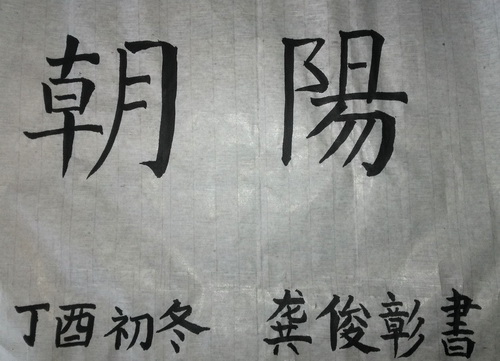 朝陽
丁酉初冬 龚俊彰書